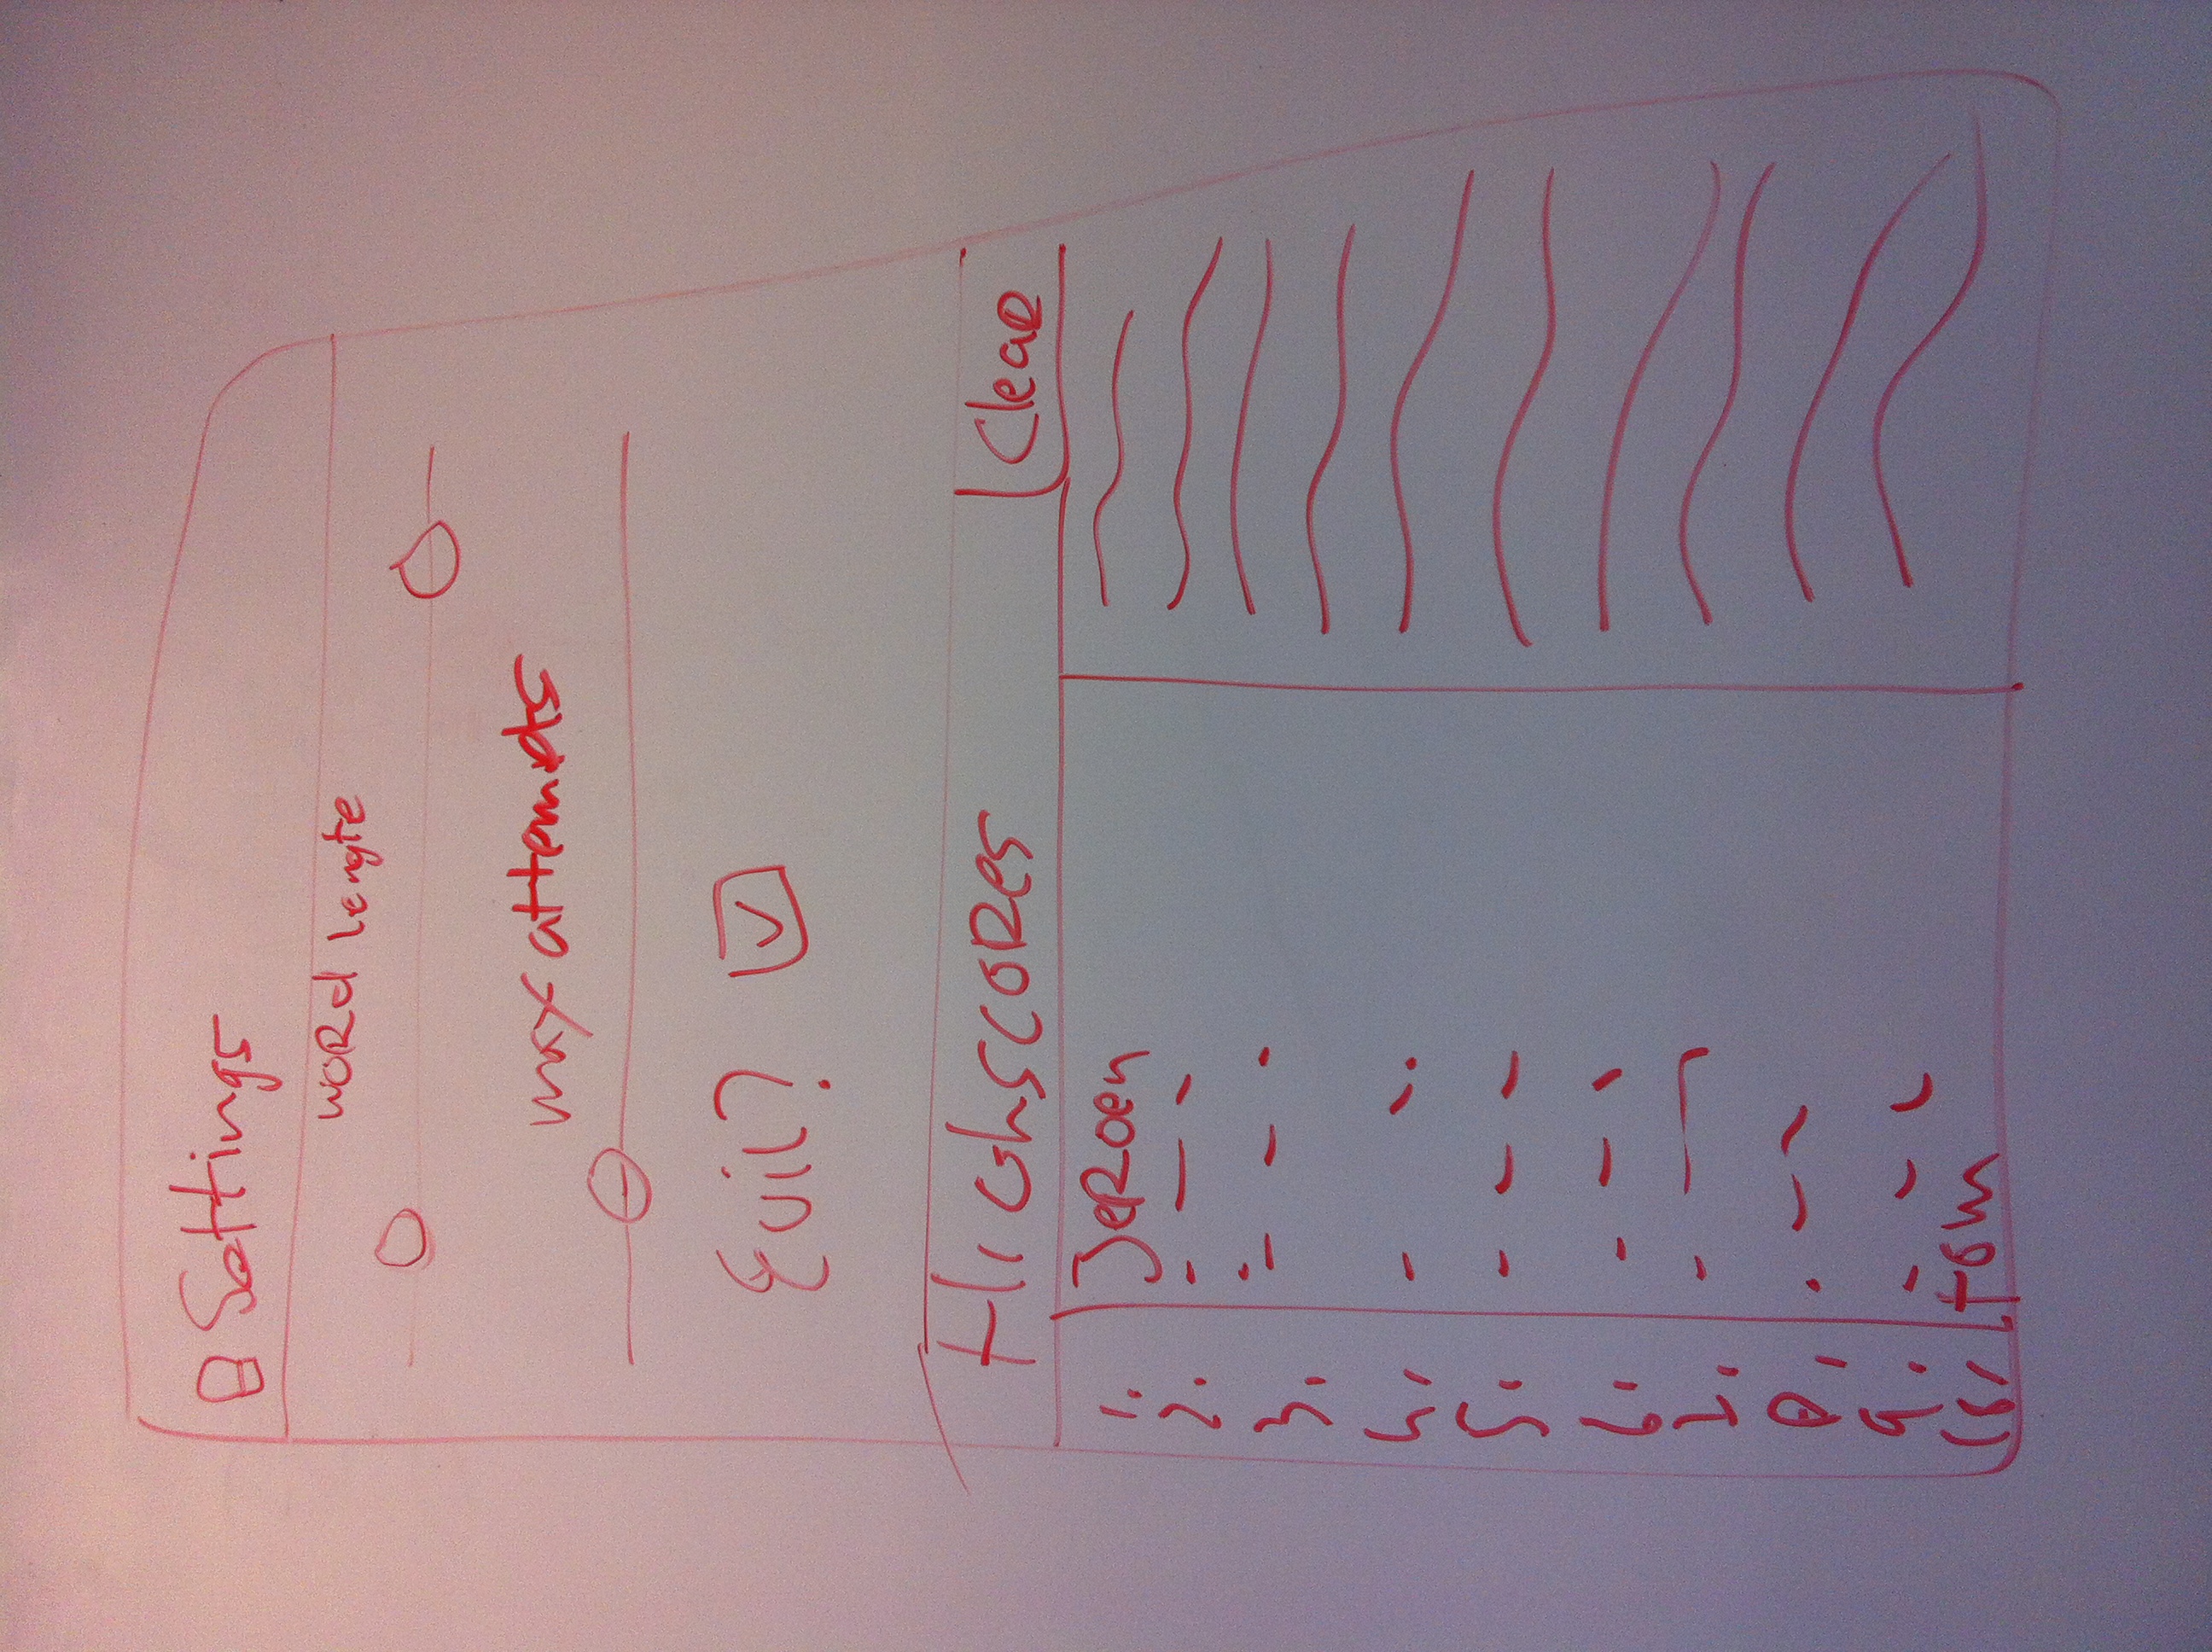 Settings
WORD Lengte
max attempts
Evil?
HIGHSCORES Clear
1. JeRoen
2.
3.
4.
5.
6.
7.
8.
9.
10. tom